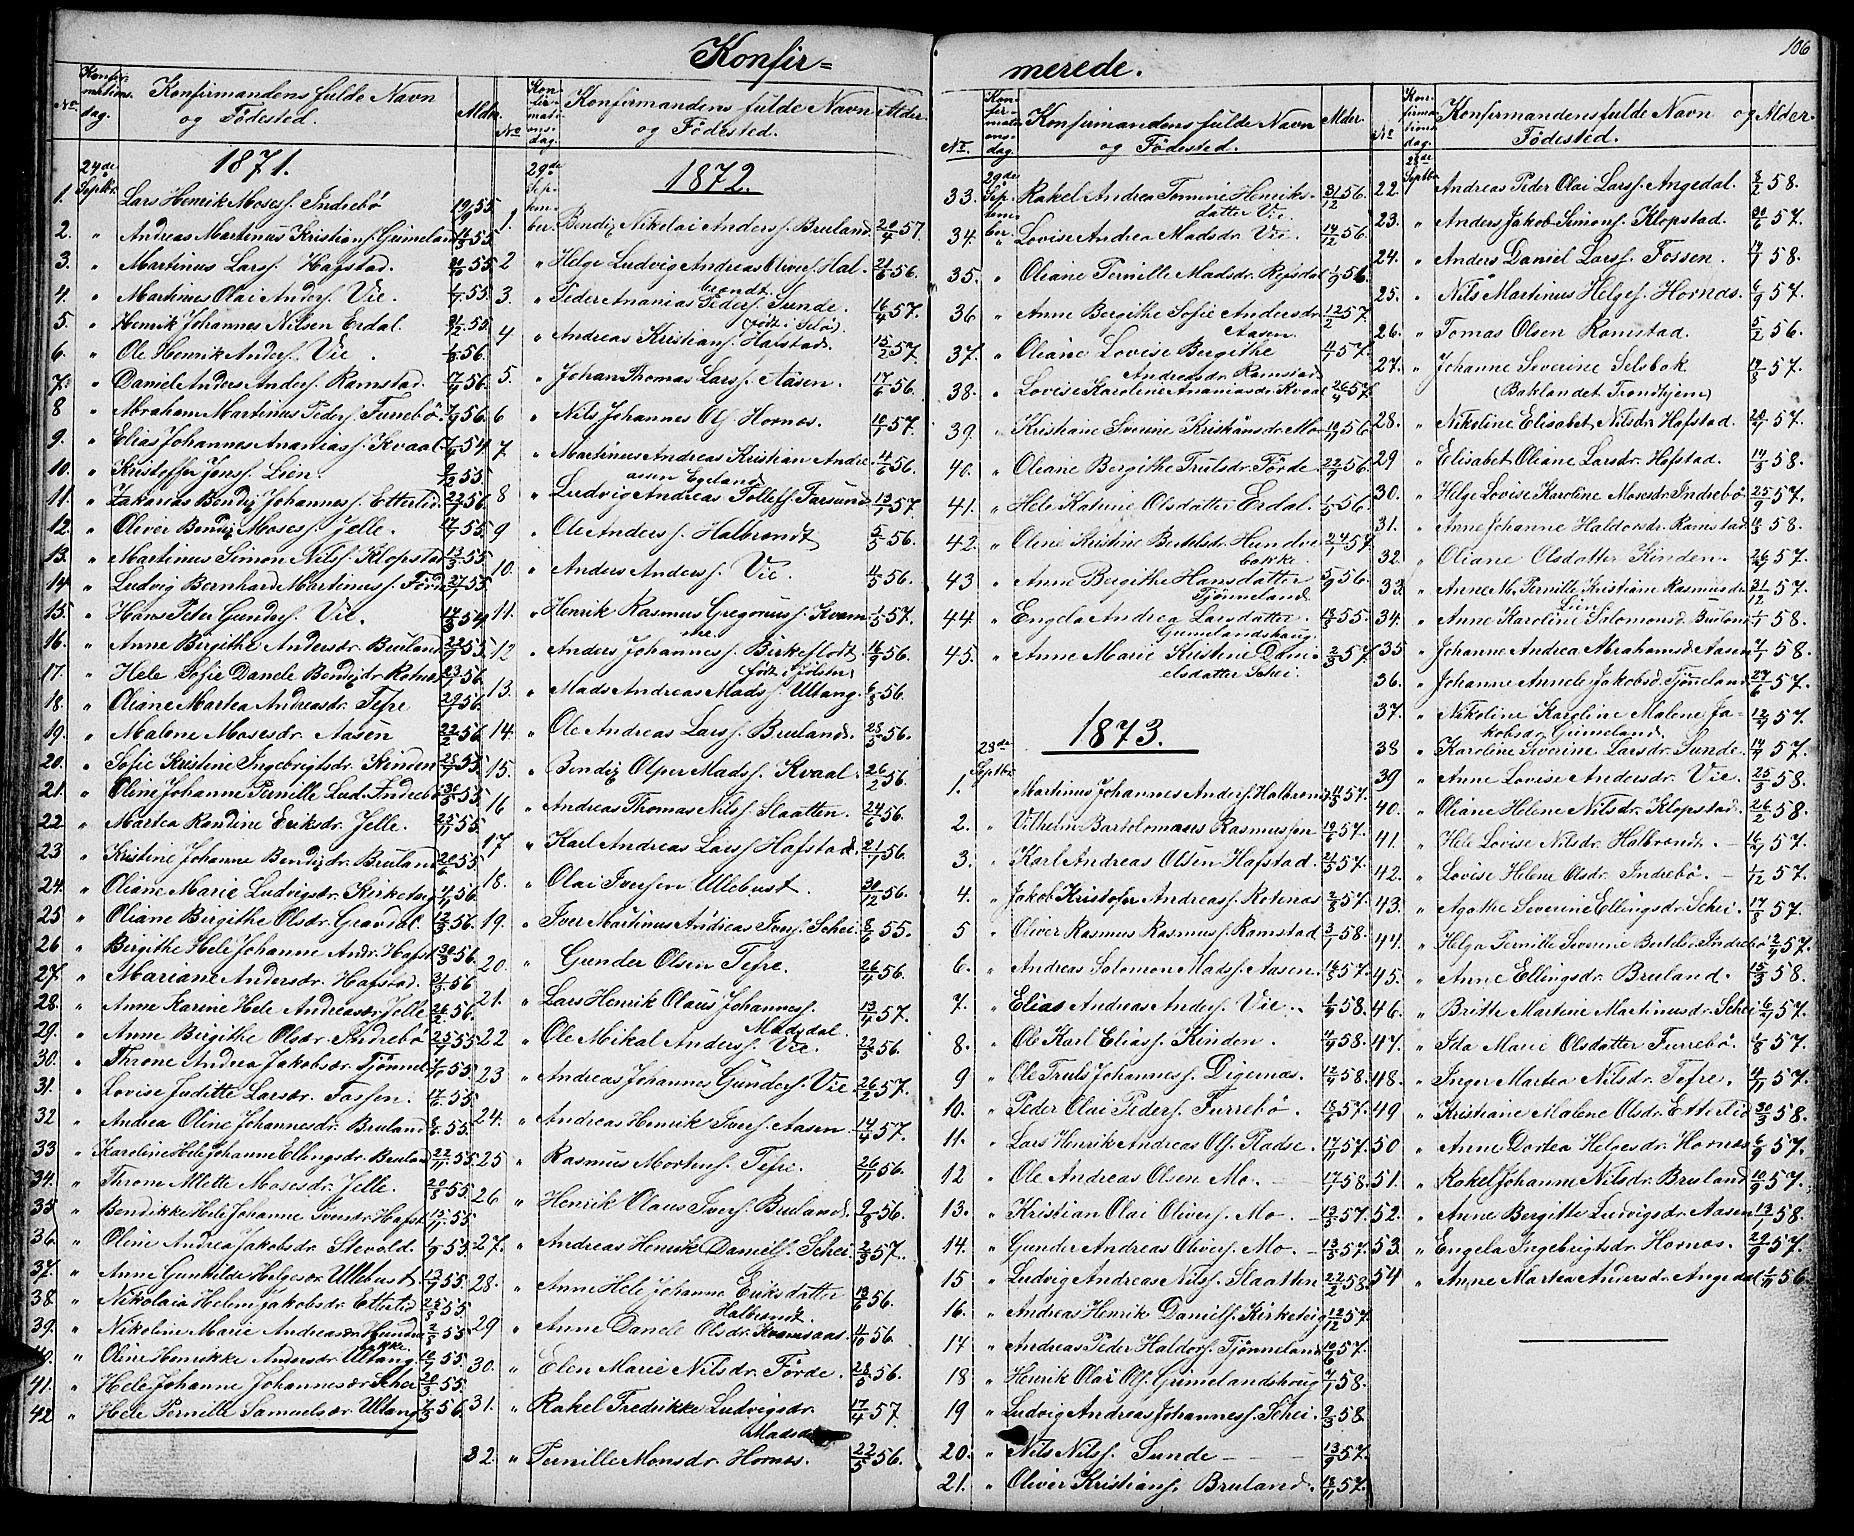 106
Konfir=
merede.
No. Konfirmations dag. Konfirmandens fulde Navn og Fødested. Alder.
1871.
24de Septbr.
1. Lars Henrik Moses. Indrebø 19/9 55
2. " Andreas Martinus Kristians. Gimeland 55
3. " Martinus Larss. Hafstad. 55
4. " Martinus Olai Anders. Vie. 55
5. " Henrik Johannes Nilsen Erdal. 55
6. " Ole Henrik Anders. Vie. 56
7. " Daniel Anders Anders. Ramstad. 56
8 " Abraham Martinus Peders. Furrebø 56
9. " Elias Johannes Ananiass. Kvaal 54
10. " Kristoffer Jens. Lien. 55
11. " Zakarias Bendiz Johanness. Ettertid 56
12. " Oliver Bendiz Moses. Jelle. 55
13. " Martinus Simon Nils. Klopstad 55
14 " Ludvig Bernhard Martinus. Førd 55
15. " Hans Peter Gunders. Vie. 54
16. " Anne Birgithe Andersdr. Bruland 55
17. " Hele Sofie Danele Bendizdr. Rotnes 56
18. " Oliane Martea Andreasdr. Tefre 56
19. " Malene Mosesdr. Aasen 56
20. " Sofie Kristine Ingebrigtsdr. Kinden 55
21. " Oline Johanne Pernille Lud. Indrebø 55
22 " Martea Randine Eriksdr. Jelle. 55
23 " Kristine Johanne Bendizdr. Bruland 20/6 55
24. " Oliane Marie Ludvigsdr. Kirketeig 56
25 " Oliane Birgithe Olsdr. Grandal 56
26 " Birgithe Hele Johanne Andr. Hafst 56
27. " Mariane Andersdr. Hafstad. 56
28. " Anne Karine Hele Andreasdr. Jelle 56.
29. " Anne Birgithe Olsdr. Indrebø 55
30. " Throne Andrea Jakobsdr. Tjønnel 55
31. " Lovise Juditte Larsdr. Fossen. 55
32 " Andrea Oline Johannesdr. Bruland 55.
33 " Karoline Hele Johanne Ellingsdr. Bruland 55.
34. " Throne Mette Mosesdr. Jelle. 55
35 " Bendikke Hele Johanne Iversdr. Hafst 55
36. " Oline Andrea Jakobsdr. Stevold. 55
37. " Anne Gunhilde Helgesdr. Ullebust 55.
38. " Nikolaia Helene Jakobsdr. Ettertid 55
39. " Nikoline Marie Andreasdr. Hundvebakke. 55.
40. " Oline Henrikke Andersdr. Ultang 55.
41. " Hele Johanne Johannesdr. Schei 55.
42 " Hele Pernille Samuelsdr. Ultang 56.
No Konfirmations dag. Konfirmandens fulde Navn og Fødested. Alder.
1872.
29de September.
1. Bendiz Nikolai Anders. Bruland 57.
2 " Helge Ludvig Andreas Olivers. Halbrandt 21/6 56.
3. " Peder Ananias Peders. Sunde. 16/4 57.
4 " Andreas Kristians. Hafstad. 57.
5. " Johan Thomas Larss. Aasen. 17/6 56.
6 " Nils Johannes Ols. Hornes. 57.
7 " Martinus Andreas Kristian Andreasen Egeland 56.
8 " Ludvig Andreas Tollefs. Farsund 57.
9 " Ole Anders. Halbrandt 5/5 56.
10. " Anders Anders. Vie. 56.
11. " Henrik Rasmus Gregorius. Kvamme 57.
12 " Anders Johannes. Birkeflot 16/9 56.
13. " Mads Andreas Mads. Ultang. 56.
14. " Ole Andreas Lars. Bruland. 56.
15. " Bendiz Olper Mads. Kvaal. 26/2 56.
16 " Andreas Thomas Nils. Slaatten. 24/6 56.
17 " Karl Andreas Lars. Hafstad. 21/1 56.
18. " Olai Iversen Ullebust. 30/12 56.
19. " Iver Martinus Andreas Ivers. Schei. 8/6 55.
20. " Gunder Olsen Tefre. 56.
21. " Lars Henrik Olaus Johannes. Madsdal. 57.
22 " Ole Mikal Anders. Vie. 22/5 56.
23 " Andreas Johannes Gunders. Vie. 26/2 57.
24. " Andreas Henrik Ivers. Aasen. 14/4 57.
25 " Rasmus Mortens. Tefre. 56.
26 " Henrik Olaus Ivers. Bruland. 9/8 56.
27. " Andreas Henrik Daniels. Schei. 57.
28. " Anne Hele Johanne Eriksdatter Halbrandt. 56.
29 " Anne Danele Olsdr. Kvamsaas. 4/10 56.
30. " Elen Marie Nilsdr. Førde. 56.
31. " Rakel Fredrikke Ludvigsdr. 17/4 57.
32. " Pernille Monsdr. Hornes. 22/5 56.
No. Konfirmations dag. Konfirmandens fulde Navn og Fødested. Alder
29de September.
33. Rakel Andrea Tomine Henriksdatter Vie. 31/12 56.
34. " Lovise Andrea Madsdr. Vie. 19/12 56.
35. " Oliane Pernille Madsdr. Repsdal 1/9 56.
36 " Anne Bergithe Sofie Andersdr. Aasen. 12/2 57.
37. " Oliane Lovise Bergithe Andreasdr. Ramstad 57.
38. " Lovise Karoline Ananiasdr. Kvaal 57.
39. " Kristiane Severine Kristiansdr. Mo 56
40. " Oliane Bergithe Trulsdr. Førde 56.
41. " Hele Katrine Olsdatter Erdal. 1/5 56.
42. " Oline Kristine Bertelsdr. Hundvebakke. 57.
43 " Anne Bergithe Hansdatter Tjønneland. 5/9 56.
44 " Engela Andrea Larsdatter Gimelandshaug. 55.
45. " Anne Marie Kristine Danielsdatter Schei. 57.
1873.
28de Septbr.
1. Martinus Johannes Anders. Halbrandt 57.
2. " Vilhelm Bartolomæus Rasmussen 57.
3. " Karl Andreas Olsen Hafstad. 57.
4. " Jakob Kristofer Andreass. Rotenes 2/8 57.
5 " Oliver Rasmus Rasmus. Ramstad 3/1 58.
6. " Andreas Solomon Mads. Aasen. 16/8 57.
7. " Elias Andreas Anders. Vie. 58.
8. " Ole Karl Elias. Kinden. 58.
9 " Ole Truls Johannes. Digernes. 58.
10. " Peder Olai Peders. Furrebø. 57.
11. " Lars Henrik Andreas Ols. Fladse. 57.
12 " Ole Andreas Olsen Mo. 17/1 58
13. " Kristian Olai Olivers. Mo 13/8 57.
14. " Gunder Andreas Olivers. Mo 13/8 57.
15 " Ludvig Andreas Nils. Slaatten 22/2 58.
16. " Andreas Henrik Daniels. Kirketeig 12/12 57.
17 " Andreas Peder Haldors. Tjønneland 57.
18 " Henrik Olai Ols. Gimelandshaug 58.
19 " Ludvig Andreas Johannes. Schei. 58.
20. " Nils Nils. Sunde 13/9 57.
21. " Oliver Kristians. Bruland. 57.
No Konfirmations dag. Konfirmandens fulde Navn og Fødested. Alder.
28de Septbr.
22. Andreas Peder Olai Lars. Angedal. 8/2 58.
23. " Anders Jakob Simons. Klopstad. 57.
24. " Anders Daniel Lars. Fossen. 58.
25. " Nils Martinus Helges. Hornes. 6/9 57.
26. " Tomas Olsen Ramstad. 5/2 56.
27. " Johanne Severine Selsbak (Baklandet Trondhjem) 57.
28. " Nikoline Elisabet Nilsdr. Hafstad. 57.
29 " Elisabet Oliane Larsdr. Hafstad. 58.
30. " Helge Lovise Karoline Mosesdr. Indrebø 25/9 57.
31. " Anne Johanne Haldorsdr. Ramstad 58.
32. " Oliane Olsdatter Kinden. 57.
33. " Anne M. Pernille Kristiane Rasmusdr. Lien 31/12 57.
34. " Anne Karoline Salomonsd. Bruland 58.
35 " Johanne Andrea Abrahamsd. Aasen 58.
36. " Johanne Annele Jakobsd. Tjønneland 27/6 57.
37. " Nikoline Karoline Malene Jakobsdr. Gimeland. 57.
38 " Karoline Severine Larsdr. Sunde. 57.
39 " Anne Lovise Andersdr. Vie. 25/3 58.
40. " Oliane Helene Nilsdr. Klopstad. 26/2 58.
41. " Hele Lovise Nilsdr. Halbrandt. 57.
42. " Lovise Helene Olsdr. Indrebø. 1/12 57.
43. " Agathe Severine Ellingsdr. Schei. 17/8 57.
44. " Helga Pernille Severine Bertelsd. Indrebø 57.
45. " Anne Ellingsdr. Bruland. 15/3 58.
46. " Britte Martine Martinusdr. Schei 57.
47. " Ida Marie Olsdatter Furrebø. 57.
48. " Inger Martea Nilsdr. Tefre. 57.
49 " Kristiane Malene Olsdr. Ettertid 30/3 58.
50 " Anne Dortea Helgesdr. Hornes 6/9 57.
51. " Rakel Johanne Nilsdr. Bruland 10/9 57.
52. " Anne Bergitte Ludvigsdr. Aasen 13/1 58.
53. " Engela Ingebrigtsdr. Hornes. 29/9 57.
54 " Anne Martea Andersdr. Angedal 56.